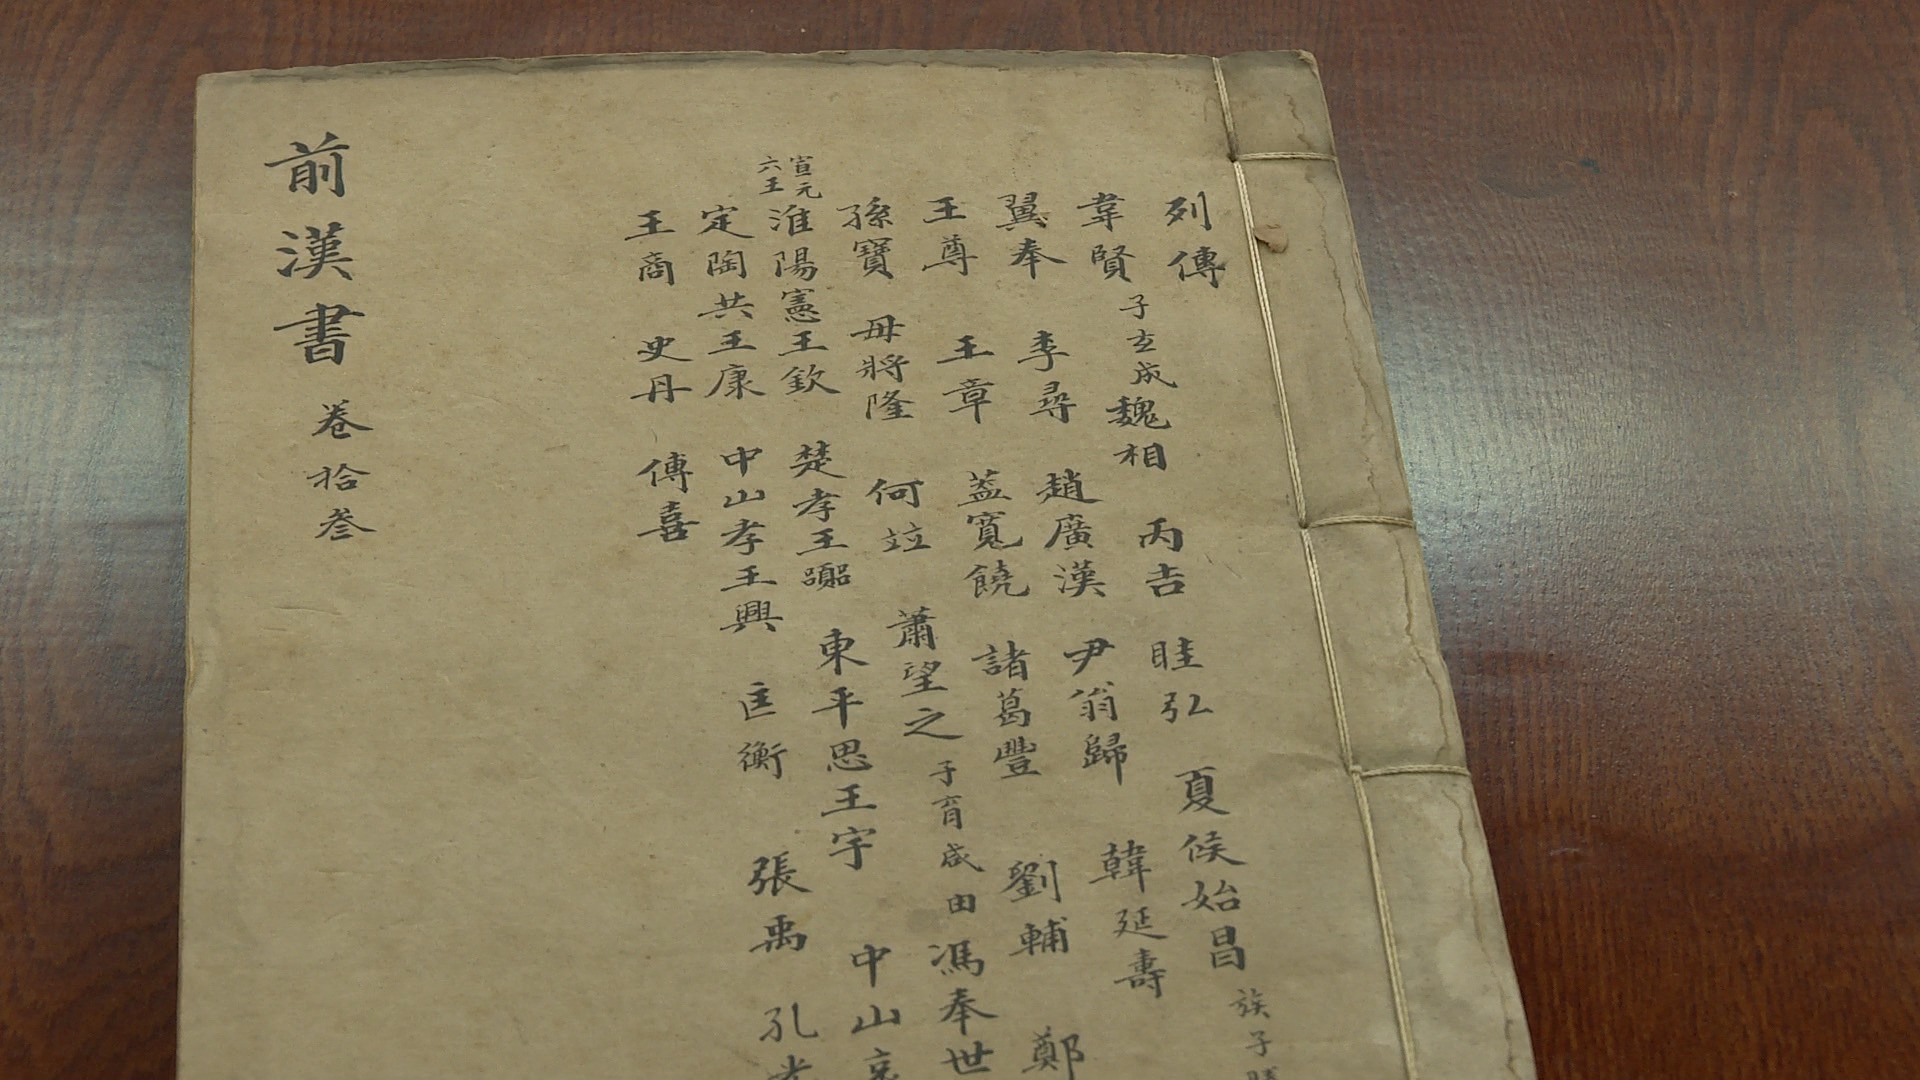 列傳
韋賢 子玄成 魏相 丙吉 眭弘 夏侯始昌 族子勝
翼奉 李尋 趙廣漢 尹翁歸 韓延壽
王尊 王章 蓋寬饒 諸葛豐 劉輔 鄭
孫寶 毋將隆 何竝 蕭望之 子育咸由 馮奉世
宣元六王 淮陽憲王欽 楚孝王囂 東平思王宇 中山哀
定陶共王康 中山孝王興 匡衡 張禹 孔光
王商 史丹 傅喜
前漢書 卷拾叁